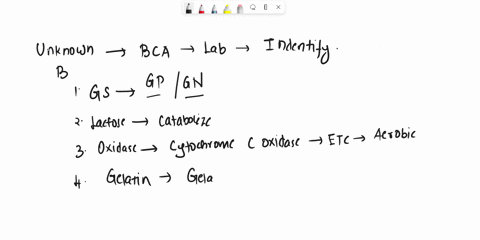 Unknown → BCA → Lab → Indentify.
B
1. GS → GP / GN
2. Lactose → Catabolize
3. Oxidase → Cytochrome C oxidase → ETC → Aerobic
4. Gelatin → Gela